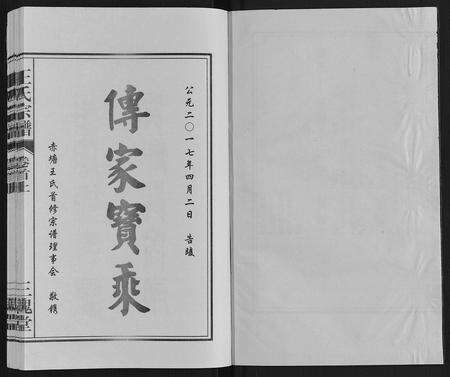 公元二〇一七年四月二日 告竣
傳家寶乘
赤塘王氏首修宗譜理事会 敬鐫
王氏宗譜 卷首上 三槐堂